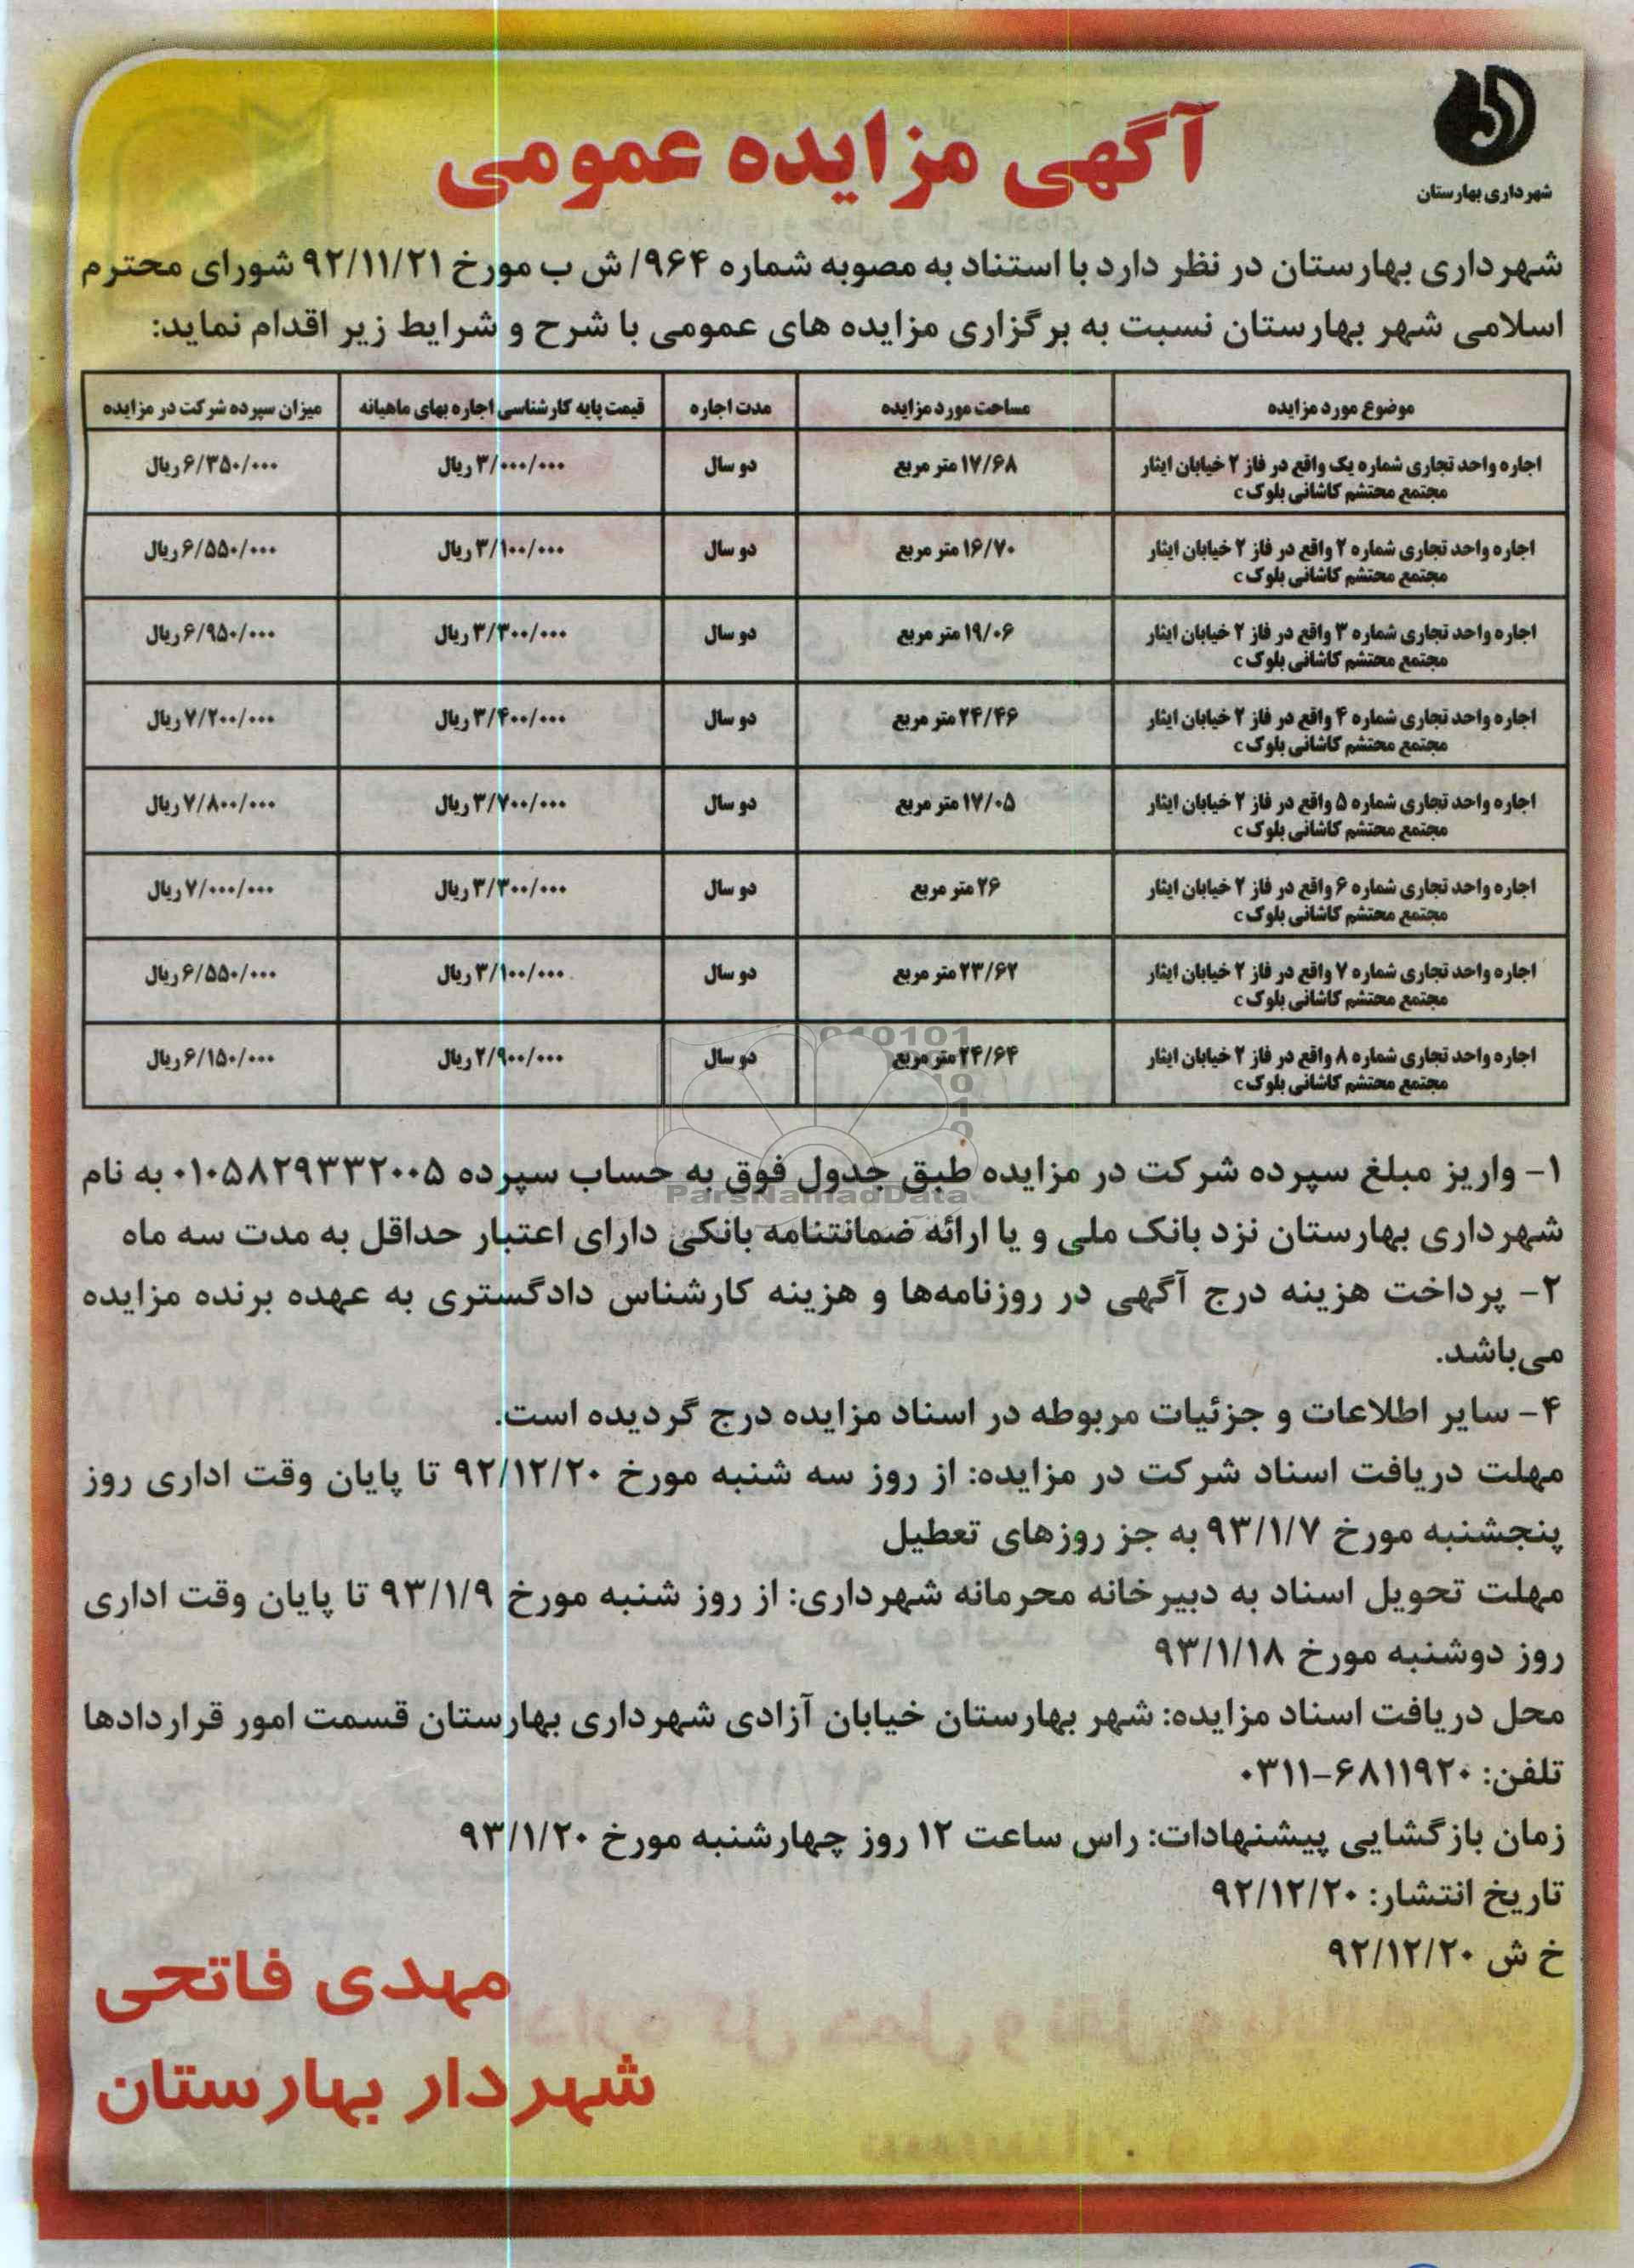 شهرداری بهارستان
آگهی مزایده عمومی
شهرداری بهارستان در نظر دارد با استناد به مصوبه شماره ۹۶۴/ ش ب مورخ ۹۲/۱۱/۲۱ شورای محترم
اسلامی شهر بهارستان نسبت به برگزاری مزایده های عمومی با شرح و شرایط زیر اقدام نماید:
موضوع مورد مزایده مساحت مورد مزایده مدت اجاره قیمت پایه کارشناسی اجاره بهای ماهیانه میزان سپرده شرکت در مزایده
اجاره واحد تجاری شماره یک واقع در فاز ۲ خیابان ایثار ۱۷/۶۸ متر مربع دو سال ۳/۰۰۰/۰۰۰ ریال ۶/۳۵۰/۰۰۰ ریال
مجتمع محتشم کاشانی بلوک c
اجاره واحد تجاری شماره ۲ واقع در فاز ۲ خیابان ایثار ۱۶/۷۰ متر مربع دو سال ۳/۱۰۰/۰۰۰ ریال ۶/۵۵۰/۰۰۰ ریال
مجتمع محتشم کاشانی بلوک c
اجاره واحد تجاری شماره ۳ واقع در فاز ۲ خیابان ایثار ۱۹/۰۶ متر مربع دو سال ۳/۳۰۰/۰۰۰ ریال ۶/۹۵۰/۰۰۰ ریال
مجتمع محتشم کاشانی بلوک c
اجاره واحد تجاری شماره ۴ واقع در فاز ۲ خیابان ایثار ۲۴/۴۶ متر مربع دو سال ۳/۴۰۰/۰۰۰ ریال ۷/۲۰۰/۰۰۰ ریال
مجتمع محتشم کاشانی بلوک c
اجاره واحد تجاری شماره ۵ واقع در فاز ۲ خیابان ایثار ۱۷/۰۵ متر مربع دو سال ۳/۷۰۰/۰۰۰ ریال ۷/۸۰۰/۰۰۰ ریال
مجتمع محتشم کاشانی بلوک c
اجاره واحد تجاری شماره ۶ واقع در فاز ۲ خیابان ایثار ۲۶ متر مربع دو سال ۳/۳۰۰/۰۰۰ ریال ۷/۰۰۰/۰۰۰ ریال
مجتمع محتشم کاشانی بلوک c
اجاره واحد تجاری شماره ۷ واقع در فاز ۲ خیابان ایثار ۲۳/۶۲ متر مربع دو سال ۳/۱۰۰/۰۰۰ ریال ۶/۵۵۰/۰۰۰ ریال
مجتمع محتشم کاشانی بلوک c
اجاره واحد تجاری شماره ۸ واقع در فاز ۲ خیابان ایثار ۲۴/۶۴ متر مربع دو سال ۲/۹۰۰/۰۰۰ ریال ۶/۱۵۰/۰۰۰ ریال
مجتمع محتشم کاشانی بلوک c
۱- واریز مبلغ سپرده شرکت در مزایده طبق جدول فوق به حساب سپرده ۰۱۰۵۸۲۹۳۳۲۰۰۵ به نام
ParsNamadData
شهرداری بهارستان نزد بانک ملی و یا ارائه ضمانتنامه بانکی دارای اعتبار حداقل به مدت سه ماه
۲- پرداخت هزینه درج آگهی در روزنامه‌ها و هزینه کارشناس دادگستری به عهده برنده مزایده
می‌باشد.
۴- سایر اطلاعات و جزئیات مربوطه در اسناد مزایده درج گردیده است.
مهلت دریافت اسناد شرکت در مزایده: از روز سه شنبه مورخ ۹۲/۱۲/۲۰ تا پایان وقت اداری روز
پنجشنبه مورخ ۹۳/۱/۷ به جز روزهای تعطیل
مهلت تحویل اسناد به دبیرخانه محرمانه شهرداری: از روز شنبه مورخ ۹۳/۱/۹ تا پایان وقت اداری
روز دوشنبه مورخ ۹۳/۱/۱۸
محل دریافت اسناد مزایده: شهر بهارستان خیابان آزادی شهرداری بهارستان قسمت امور قراردادها
تلفن: ۶۸۱۱۹۲۰-۰۳۱۱
زمان بازگشایی پیشنهادات: راس ساعت ۱۲ روز چهارشنبه مورخ ۹۳/۱/۲۰
تاریخ انتشار: ۹۲/۱۲/۲۰
خ ش ۹۲/۱۲/۲۰
مهدی فاتحی
شهردار بهارستان